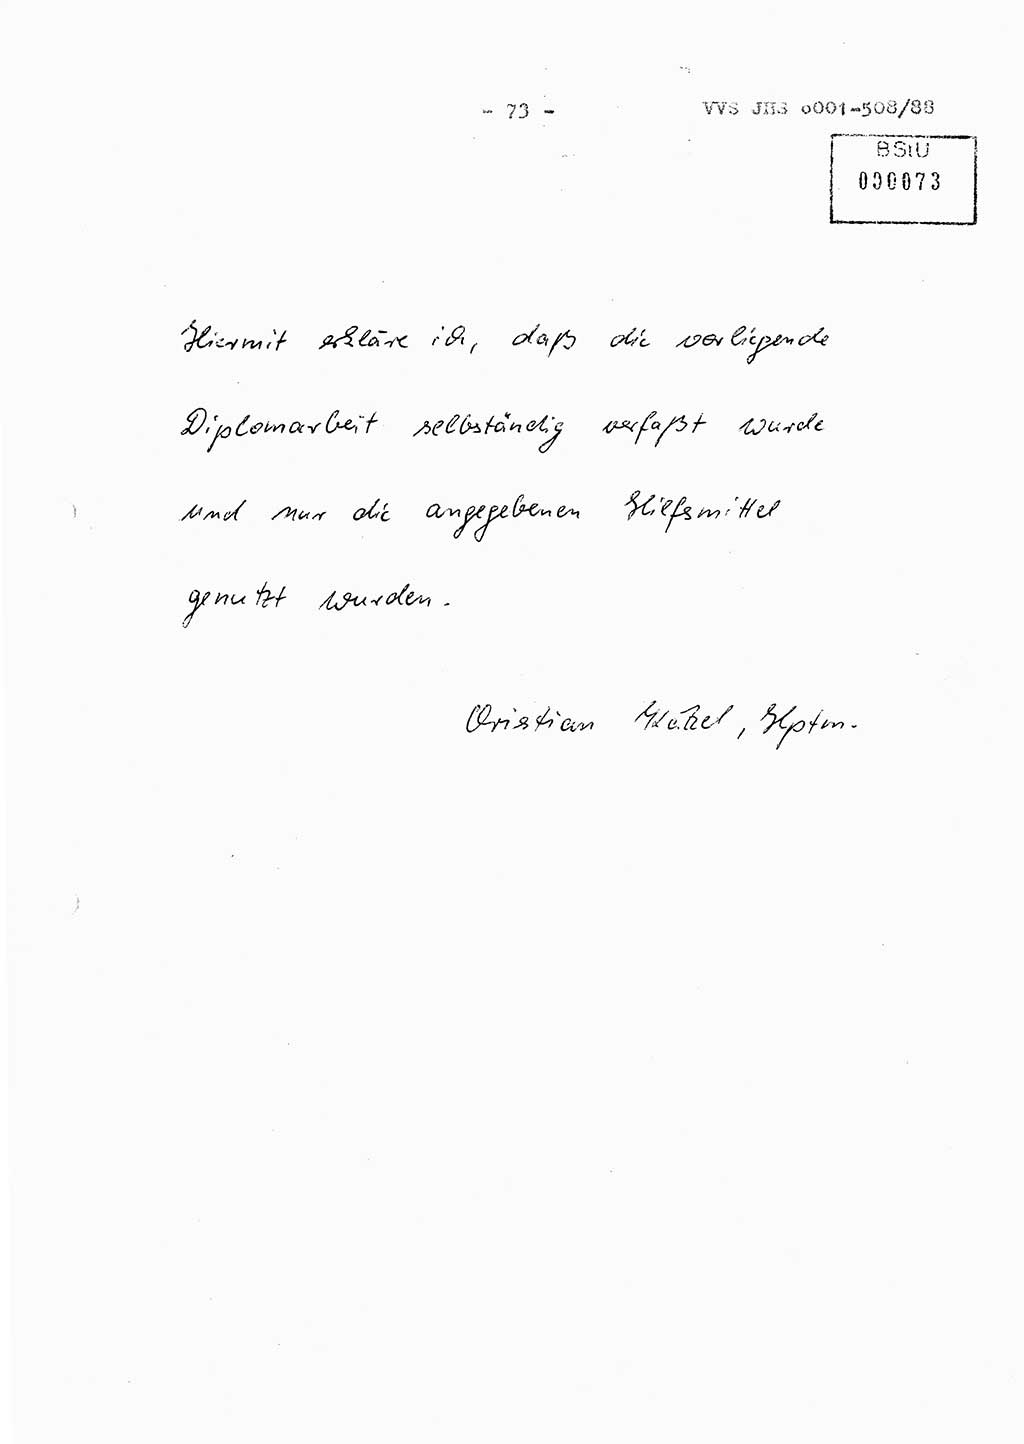 - 73 -
VVS JHS o001-508/88
BStU
000073
Hiermit erkläre ich, daß die vorliegende
Diplomarbeit selbständig verfaßt wurde
und nur die angegebenen Hilfsmittel
genutzt wurden.
Christian Kätzel, Hptm.